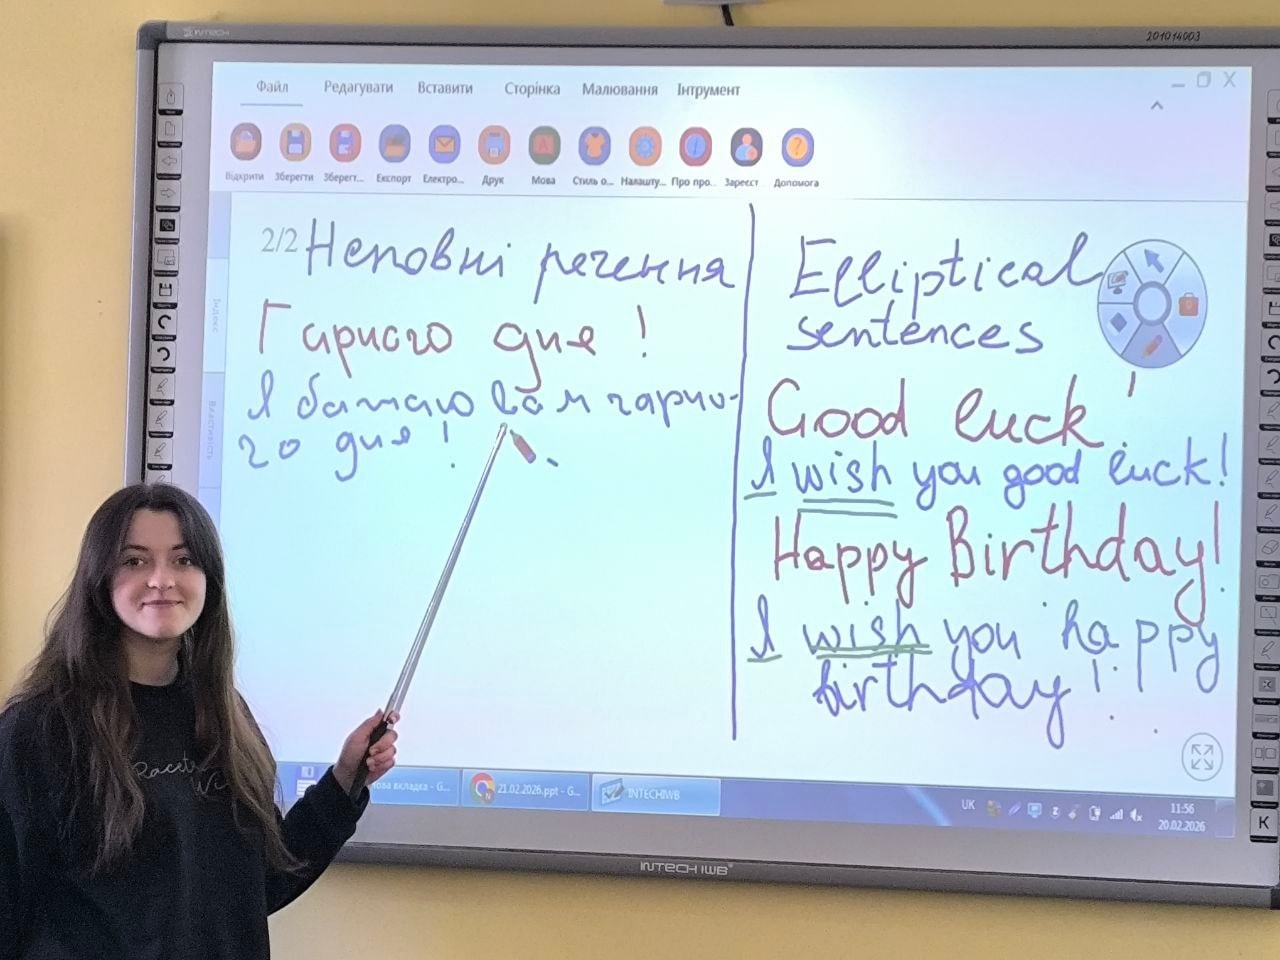 INTECH
201014003
Файл Редагувати Вставити Сторінка Малювання Інтрумент
Відкрити Зберегти Зберегт... Експорт Електро... Друк Мова Стиль о... Налашту... Про про... Зареєст Допомога
2/2
Неповні речення
Гарного дня!
Я бажаю вам гарно-
го дня!
Elliptical
sentences
Good luck!
I wish you good luck!
Happy Birthday!
I wish you happy
birthday!
Індекс
Властивість
Racet
нова вкладка - G...
21.02.2026.ppt - G...
INTECHIWB
UK
11:56
20.02.2026
INTECH IWB
K